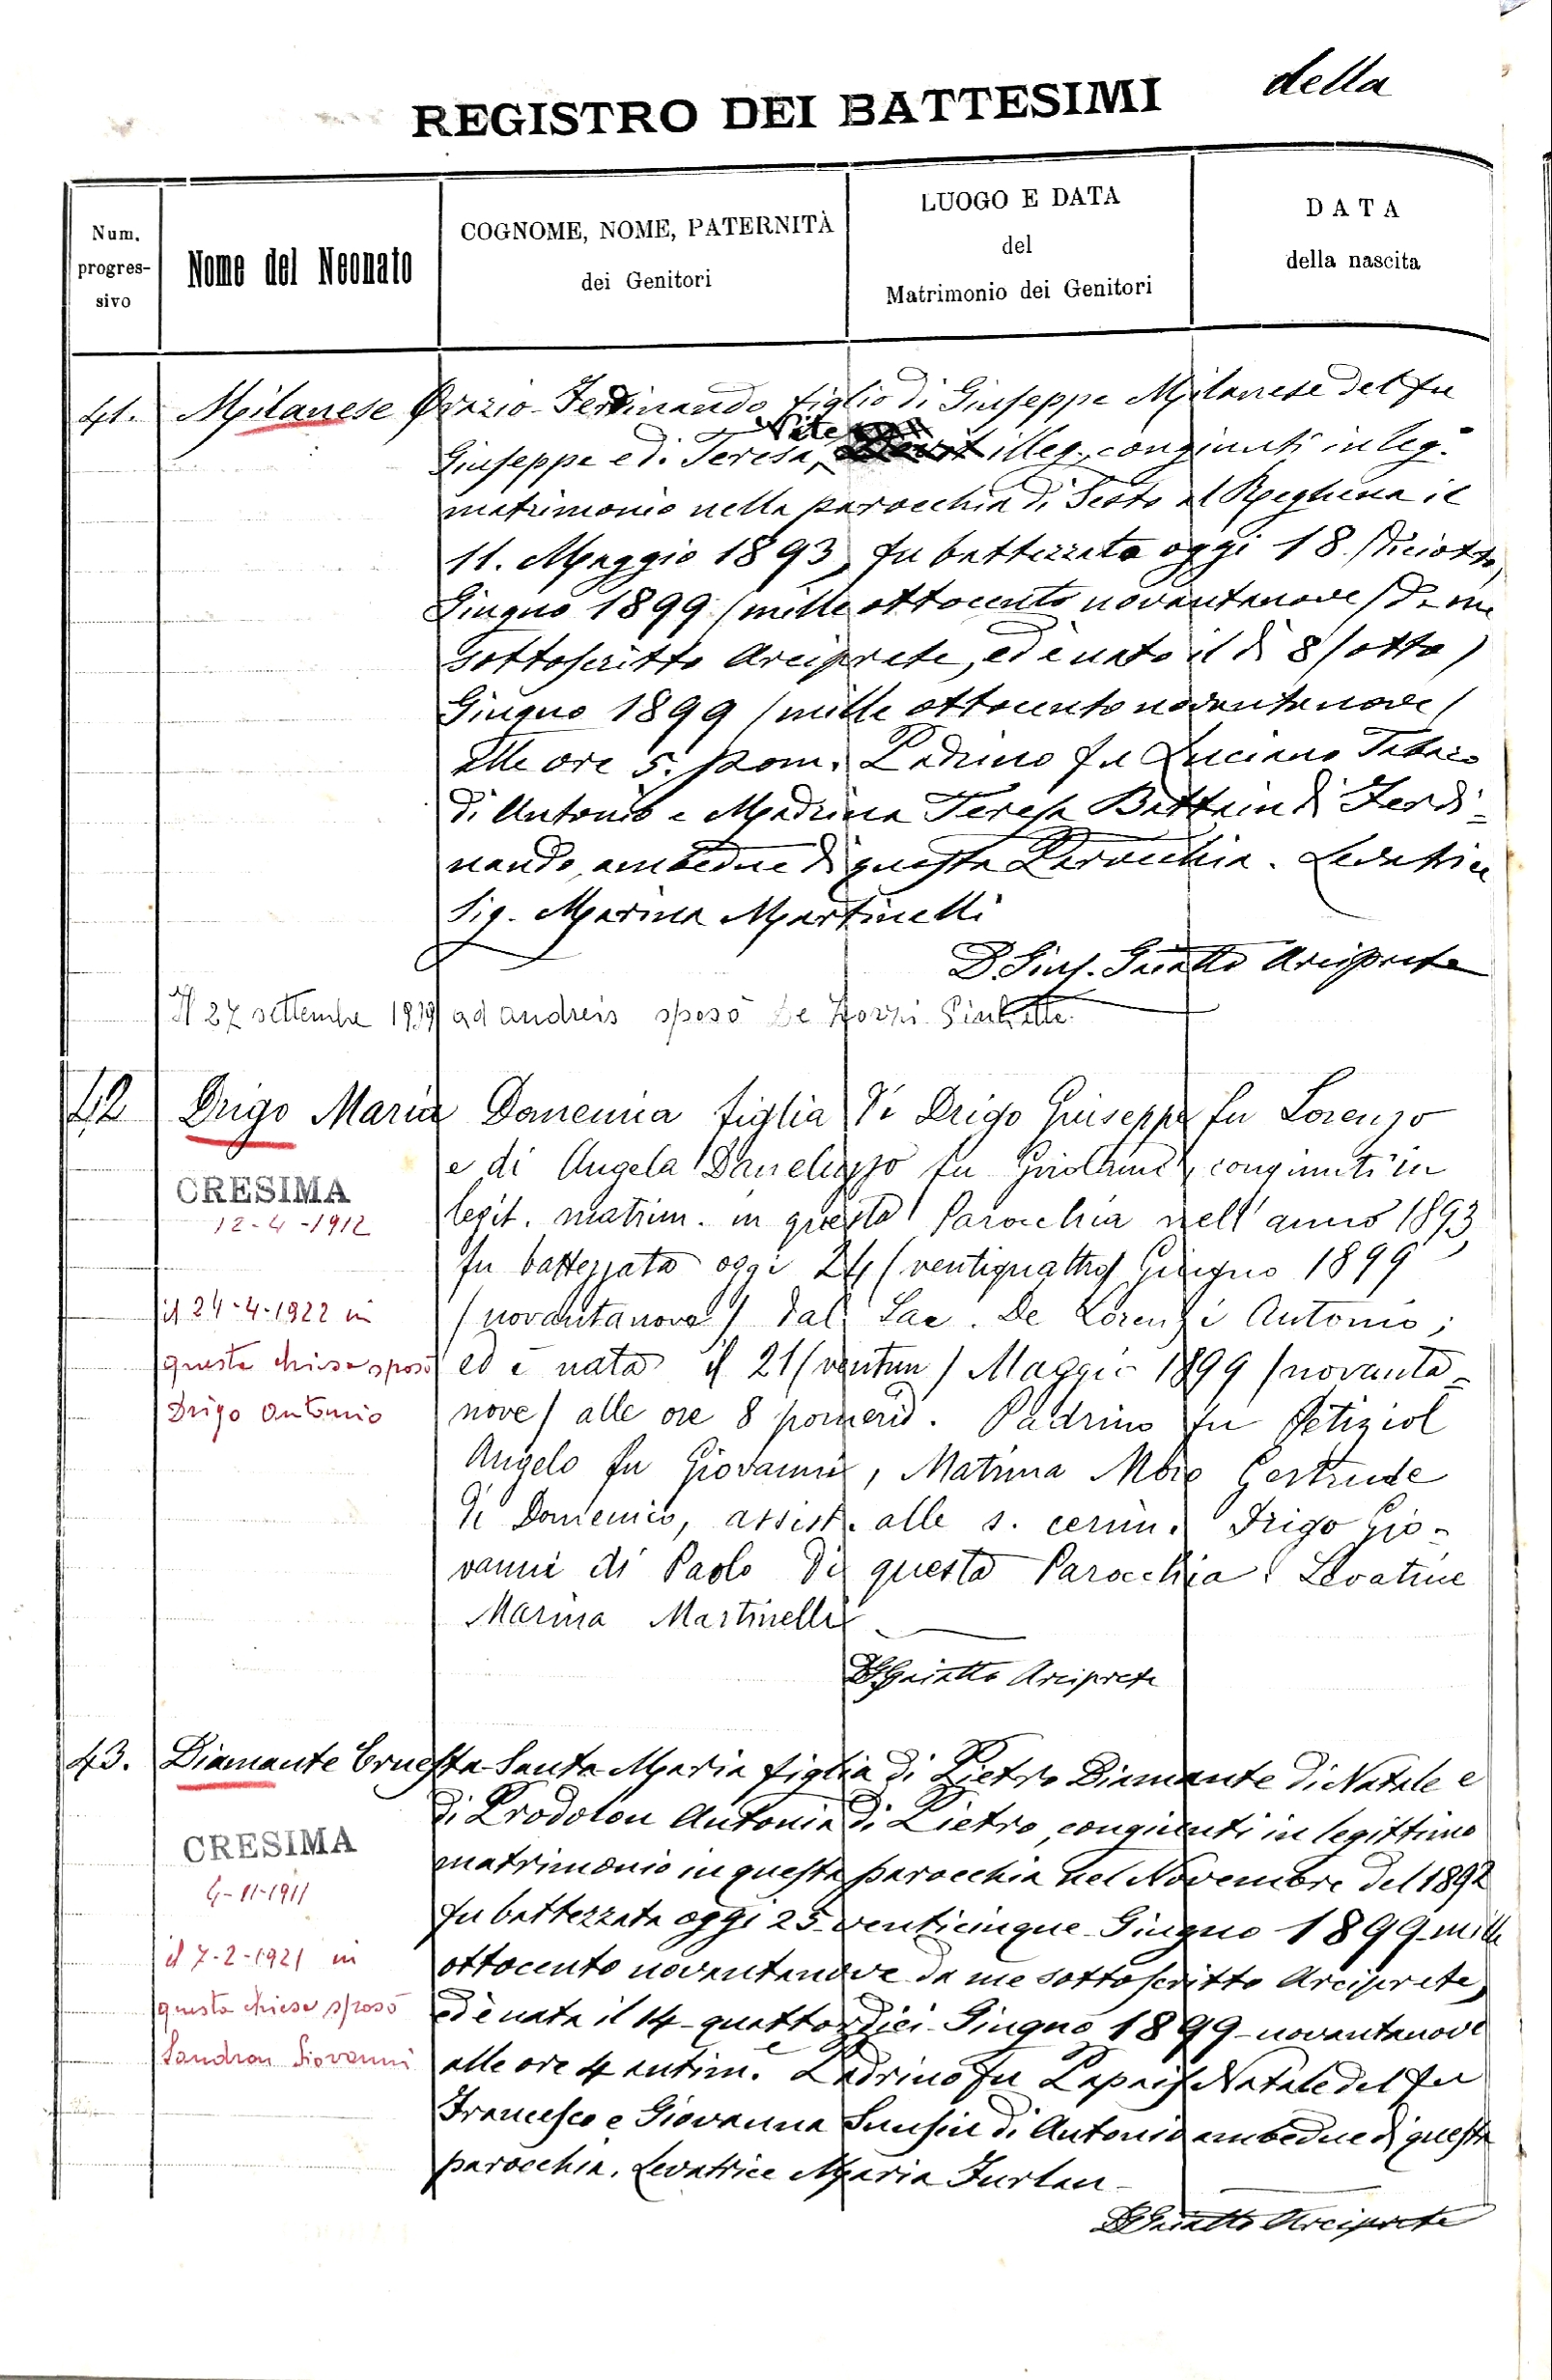 della
REGISTRO DEI BATTESIMI
Num. progres- sivo
Nome del Neonato
COGNOME, NOME, PATERNITÀ
dei Genitori
LUOGO E DATA
del
Matrimonio dei Genitori
DATA
della nascita
41. Milanese Orazio-Ferdinando figlio di Giuseppe Milanese del fu
Giuseppe e di Teresa, illeg., congiunti in leg.
matrimonio nella parocchia di Sesto al Reghena il
11. Maggio 1893, fu battezzato oggi 18 (diciotto)
Giugno 1899 (mille ottocento novantanove) da me
sottoscritto Arciprete, ed è nato il dì 8 (otto)
Giugno 1899 (mille ottocento novantanove)
alle ore 5. pom. Padrino fu Luciano
di Antonio e Madrina Teresa Battain di Ferdi=
nando, ambedue di questa Parocchia. Levatrice
Sig. Marina Martinelli
D. Gius. Guiatto Arciprete
Il 27 settembre 1939 ad Andreis sposò De Zorzi
42 Drigo Maria Domenica figlia di Drigo Guiseppe fu Lorenzo
e di Angela Daneluzzo fu Girolamo, congiunti in
CRESIMA
12-4-1912
legit. matrim. in questa Parocchia nell'anno 1893,
fu battezzata oggi 24 (ventiquattro) Giugno 1899
il 24-4-1922 in
questa chiesa sposò
Drigo Antonio
(novantanove) dal Sac. De Lorenzi Antonio;
ed è nata il 21 (ventun) Maggio 1899 (novanta=
nove) alle ore 8 pomerid. Padrino fu Petiziol
Angelo fu Giovanni, Matrina Moro Gertrude
di Domenico, assist. alle s. cerim. Drigo Gio=
vanni di Paolo di questa Parocchia. Levatrice
Marina Martinelli
D. Guiatto Arciprete
43. Diamante Ernesta-Santa-Maria figlia di Pietro Diamante di Natale e
di Prodolon Antonia di Pietro, congiunti in legittimo
CRESIMA
4-11-1911
matrimonio in questa parocchia nel Novembre del 1892
fu battezzata oggi 25-venticinque-Giugno 1899-mille
il 7-2-1921 in
questa chiesa sposò
Sandron Giovanni
ottocento novantanove da me sottoscritto Arciprete,
ed è nata il 14-quattordici-Giugno 1899-novantanove
alle ore 4 antim. Padrino fu Papais Natale del fu
Francesco e Giovanna di Antonio ambedue di questa
parocchia. Levatrice Maria Furlan-
D. Guiatto Arciprete